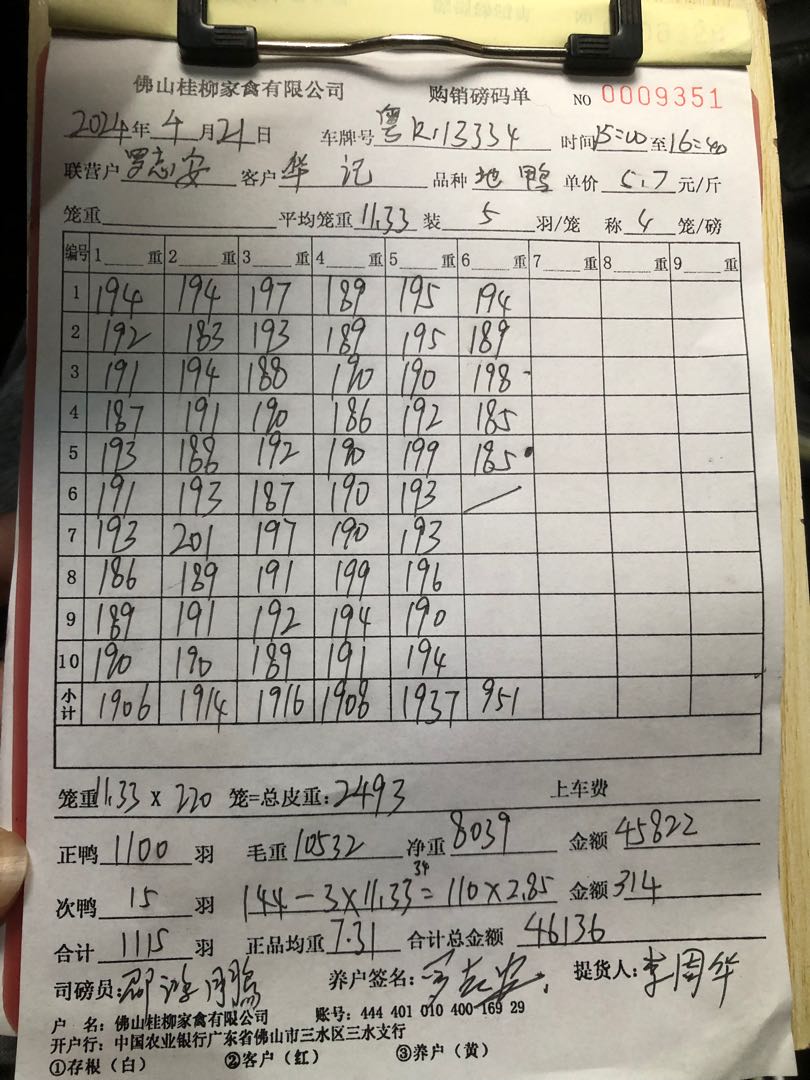 佛山桂柳家禽有限公司 购销磅码单 NO 0009351
2024年 4 月 21 日 车牌号 粤R·13334 时间 15=00 至 16=40
联营户 罗志安 客户 华记 品种 地鸭 单价 5.7 元/斤
笼重 平均笼重 11.33 装 5 羽/笼 称 4 笼/磅
编号 1 重 2 重 3 重 4 重 5 重 6 重 7 重 8 重 9 重
1 194 194 197 189 195 194
2 192 183 193 189 195 189
3 191 194 188 190 190 198
4 187 191 190 186 192 185
5 193 188 192 190 199 185
6 191 193 187 190 193
7 193 201 197 190 193
8 186 189 191 199 196
9 189 191 192 194 190
10 190 190 189 191 194
小计 1906 1914 1916 1908 1937 951
笼重 11.33 X 220 笼=总皮重: 2493 上车费
正鸭 1100 羽 毛重 10532 净重 8039 金额 45822
34
次鸭 15 羽 144 - 3 X 11.33 = 110 X 2.85 金额 314
合计 1115 羽 正品均重 7.31 合计总金额 46136
司磅员: 养户签名: 罗志安 提货人: 李周华
户 名: 佛山桂柳家禽有限公司 账号: 444 401 010 400 169 29
开户行: 中国农业银行广东省佛山市三水区三水支行
①存根（白） ②客户（红） ③养户（黄）